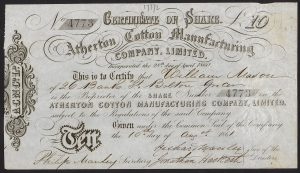 No 4773 CERTIFICATE OF SHARE. £10
Atherton Cotton Manufacturing
COMPANY, LIMITED.
Incorporated the
This is to Certify that William Mason
of 26 Bank St Bolton
is the Proprietor of the SHARE Number 4773 in the
ATHERTON COTTON MANUFACTURING COMPANY, LIMITED,
subject to the Regulations of the said Company.
Given under the Common Seal of the Company
Ten the 10th day of 1861
Philip Manley Secretary Directors